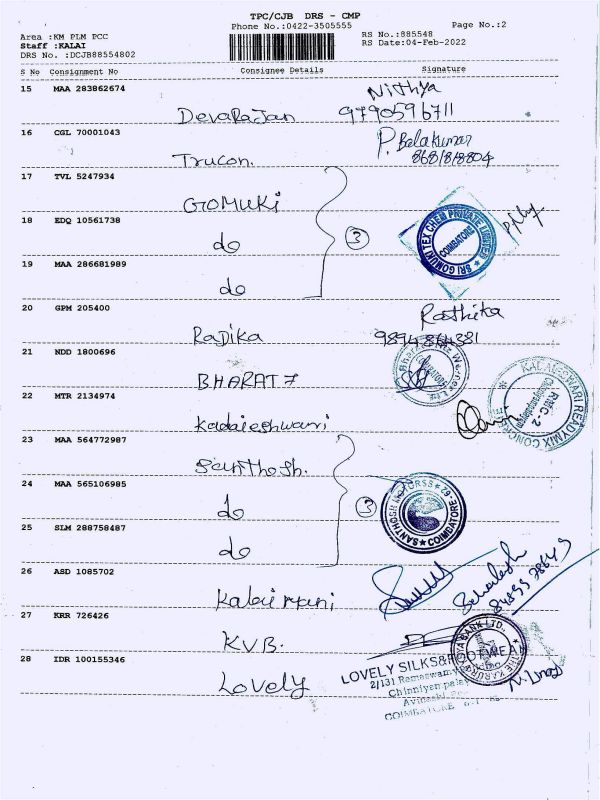 TPC/CJB DRS - CMP
Phone No.:0422-3505555
Page No.:2
Area :KM PLM PCC
Staff :KALAI
DRS No. :DCJB88554802
RS No.:885548
RS Date:04-Feb-2022
S No Consignment No Consignee Details Signature
15 MAA 283862674
Devarajan
Nithya
9790596711
16 CGL 70001043
Trucon.
P. Balakumar
8681818804
17 TVL 5247934
GOMUKI
18 EDQ 10561738
do
3
SRI GOMUKI TEX CHEM PRIVATE LIMITED
COIMBATORE
19 MAA 286681989
do
20 GPM 205400
Radika
Rasthika
9894864381
21 NDD 1800696
BHARAT 7
22 MTR 2134974
Kadaieshwari
KALAISWARI READYMIX
RMC-2
23 MAA 564772987
Santhosh.
24 MAA 565106985
do
3
SANTHOSH MOTORSS
COIMBATORE
25 SLM 288758487
do
26 ASD 1085702
Kalaimani
27 KRR 726426
KVB.
28 IDR 100155346
Lovely
LOVELY SILKS & FOOTWEAR
2/131 Ramaswamy
Chinniyen palayam
COIMBATORE